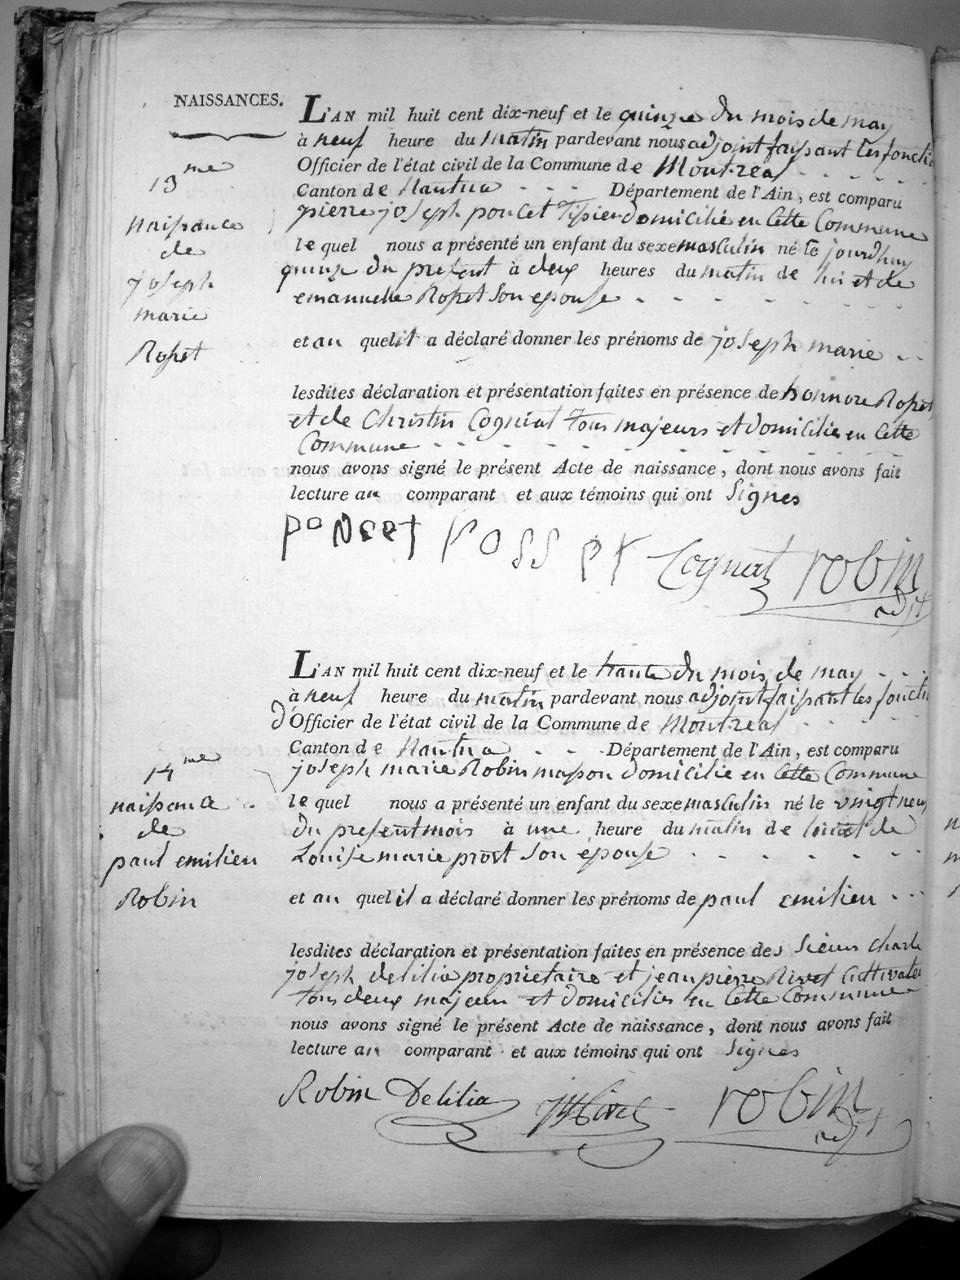 NAISSANCES.
L'AN mil huit cent dix-neuf et le quinze du mois de may
à neuf heure du matin pardevant nous adjoint faisant les fonctio
Officier de l'état civil de la Commune de Montreal
Canton de Nantua Département de l'Ain, est comparu
pierre joseph poncet tisier domicilié en cette Commune
le quel nous a présenté un enfant du sexe masculin né le jourdhuy
quinze du present à deux heures du matin de lui et de
emanuelle Rosset son epouse
et au quel il a déclaré donner les prénoms de joseph marie
lesdites déclaration et présentation faites en présence de honnore Rosset
et de Christin Cognat tous majeurs et domiciliés en Cette
Commune
nous avons signé le présent Acte de naissance, dont nous avons fait
lecture au comparant et aux témoins qui ont Signes
poncet rosset Cognat robin
adjt
13me
naissance
de
joseph
marie
Rosset
L'AN mil huit cent dix-neuf et le trante du mois de may
à neuf heure du matin pardevant nous adjoint faisant les fonctio
d'Officier de l'état civil de la Commune de Montreal
Canton de Nantua Département de l'Ain, est comparu
joseph marie Robin masson domicilié en Cette Commune
le quel nous a présenté un enfant du sexe masculin né le vingt neuf
du present mois à une heure du matin de lui et de
Louise marie prost son épouse
et au quel il a déclaré donner les prénoms de paul emilien
lesdites déclaration et présentation faites en présence des sieurs Charle
joseph delilia proprietaire et jean pierre Rivet Cultivateu
tous deux majeur et domiciliés en Cette Commune
nous avons signé le présent Acte de naissance, dont nous avons fait
lecture au comparant et aux témoins qui ont Signes
Robin Delilia robin
adjt
14me
naissance
de
paul emilien
Robin